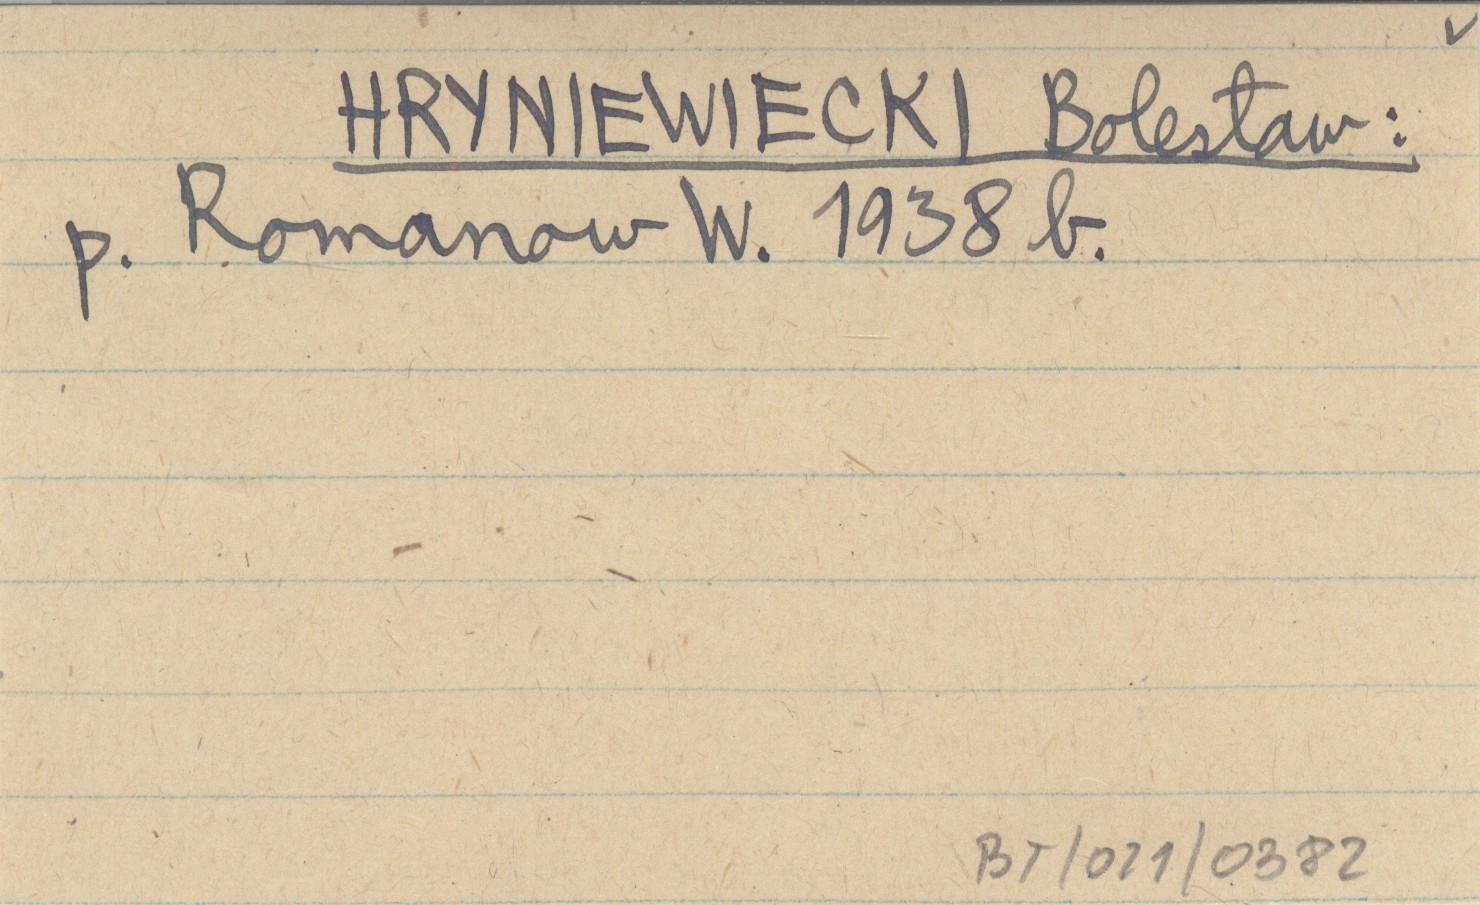 HRYNIEWIECKI Bolesław:
p. Romanow W. 1938 b.
BT/021/0382